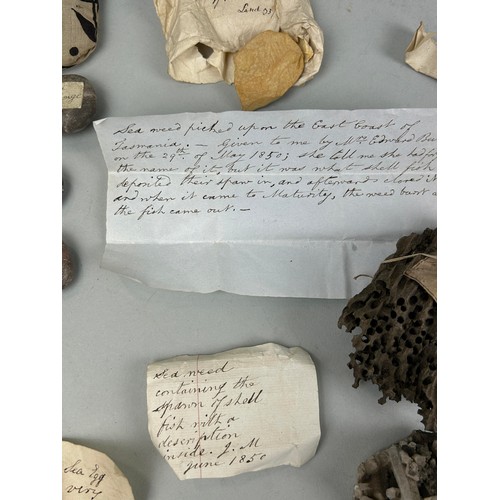 Land
Sea weed picked upon the East Coast of
Tasmania. — Given to me by Mrs Edward
on the 29th. of May 1850; she told me she had
the name of it, but it was what shell fish
deposited their spawn in, and afterwards closed it
and when it came to Maturity, the weed burst
the fish came out. —
Sea weed
containing the
spawn of shell
fish with a
description
inside. J. M
June 1850
Sea Egg
very